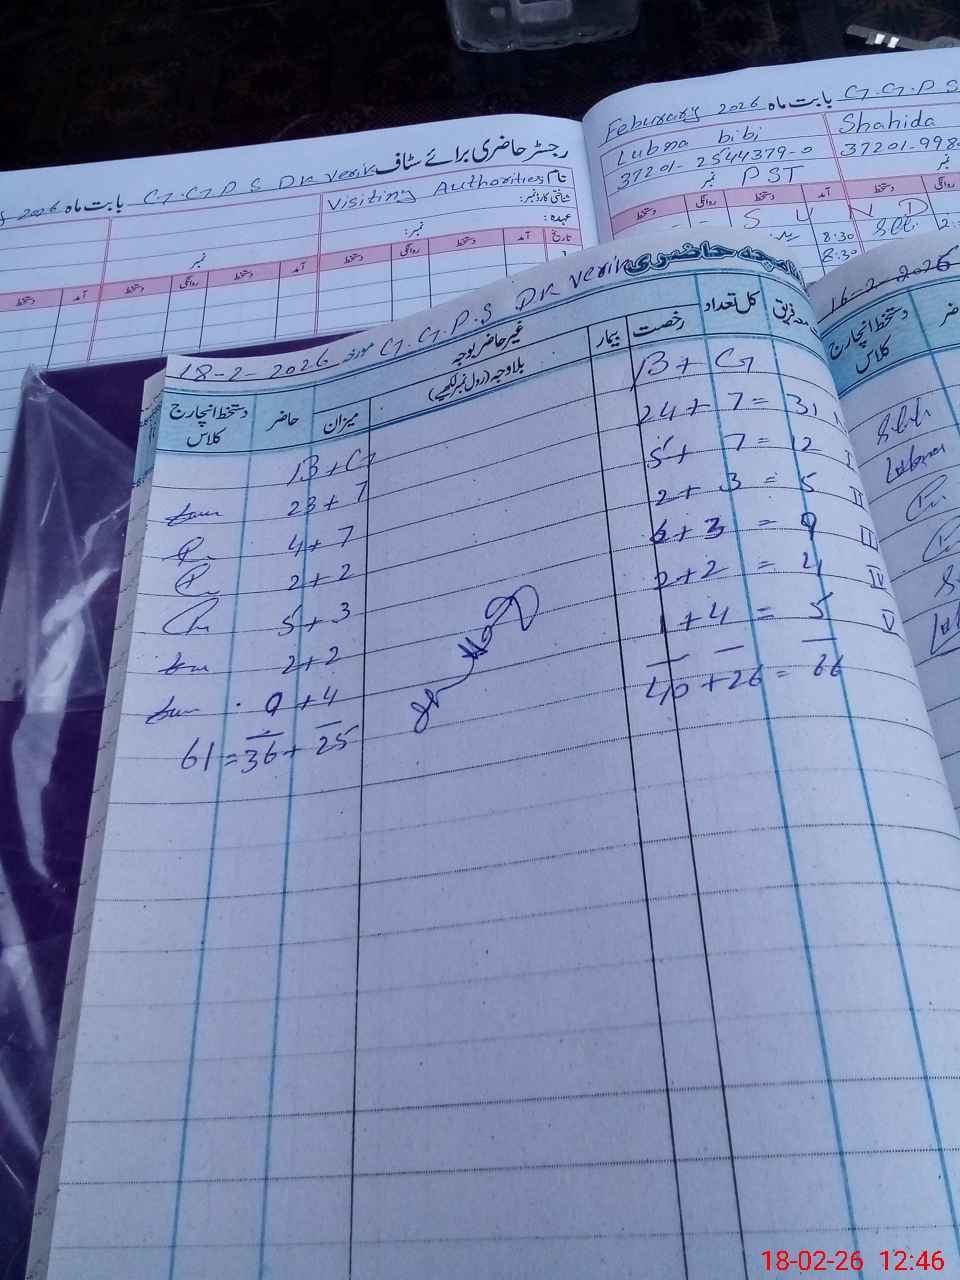 رجسٹر حاضری برائے سٹاف
2026 بابت ماہ G.G.P.S Dk Verik
Visiting Authorities نام
شناختی کارڈ نمبر:
عہدہ:
نمبر: نمبر
تاریخ آمد دستخط روانگی دستخط آمد دستخط روانگی دستخط آمد دستخط
Feburary 2026 بابت ماہ G.G.P.S
Lubna bibi Shahida
37201-2544379-0 37201-998
PST نمبر
دستخط روانگی دستخط آمد دستخط روانگی
S U N D
8:30
8:30
حاضری
18-2-2026 مورخہ G.G.P.S Dk Verik
کل تعداد رخصت بیمار غیر حاضر بوجہ
بلاوجہ (رول نمبر لکھیے)
میزان حاضر دستخط انچارج کلاس
B + G
24 + 7 = 31
5 + 7 = 12 I
2 + 3 = 5 II
6 + 3 = 9 III
2 + 2 = 4 IV
1 + 4 = 5 V
40 + 26 = 66
B + G
23 + 7
4 + 7
2 + 2
5 + 3
2 + 2
0 + 4
61 = 36 + 25
16-2-2026
دستخط انچارج کلاس
Lubna
18-02-26 12:46